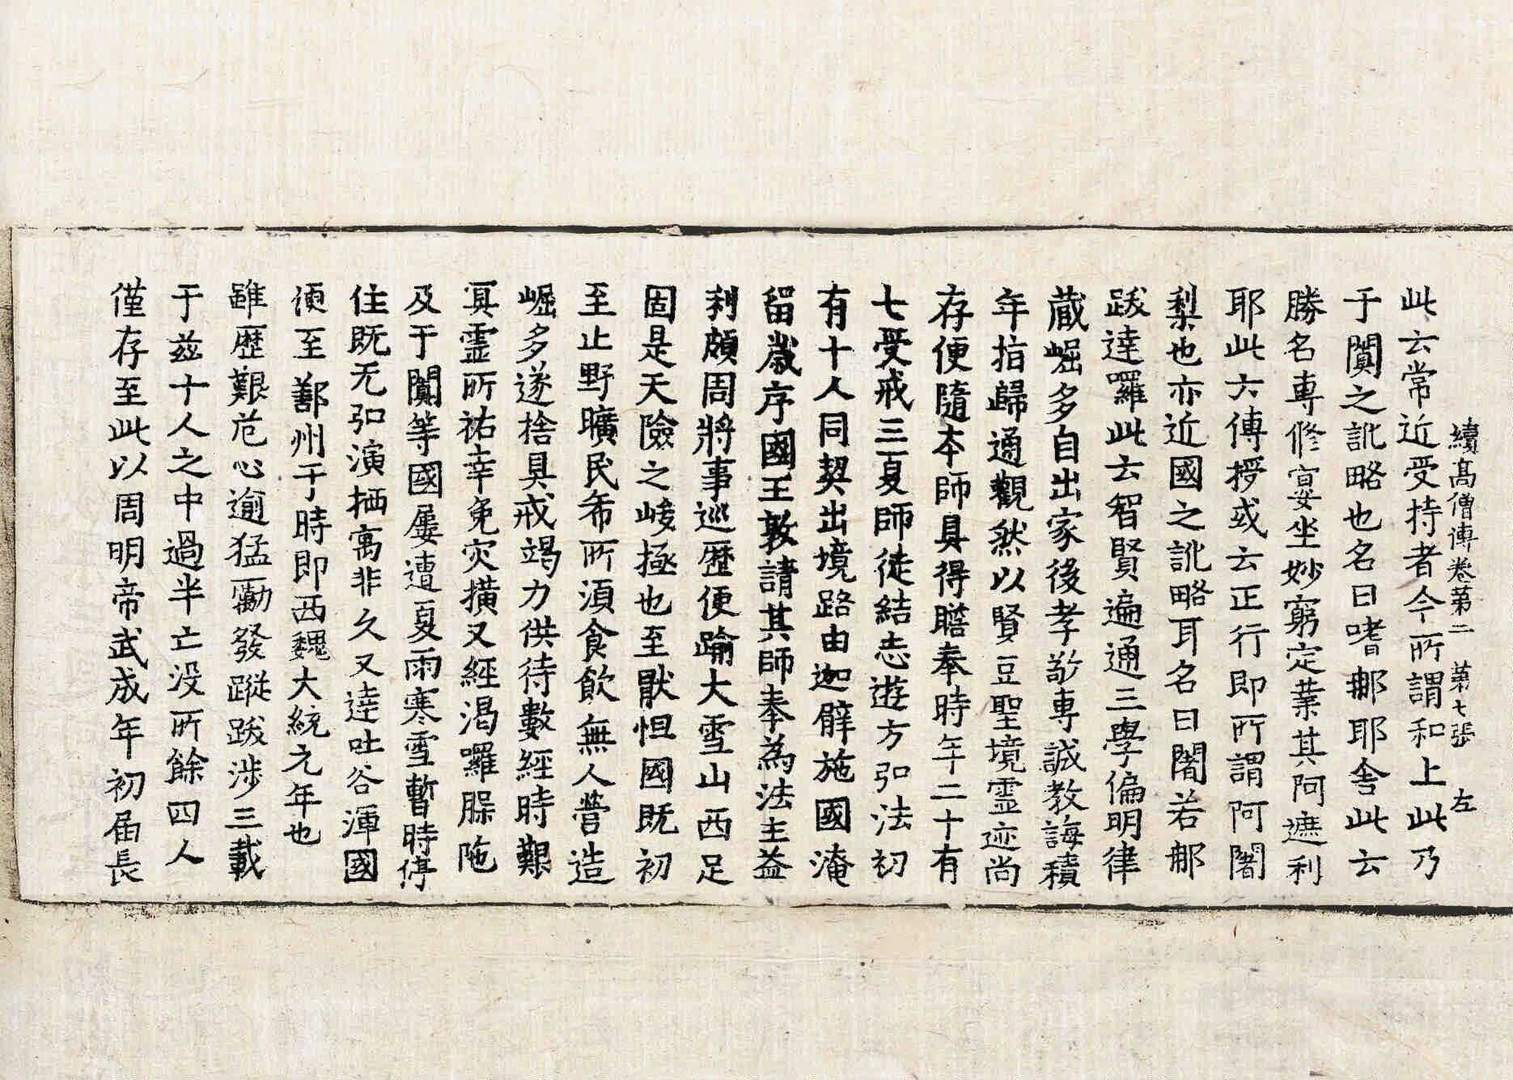 續高僧傳卷第二　第七張　左
此云常近受持者今所謂和上此乃
于闐之訛略也名曰嗜那耶舍此云
勝名專修宴坐妙窮定業其阿遮利
耶此云傳授或云正行即所謂阿闍
梨也亦近國之訛略耳名曰闍若那
跋達羅此云智賢遍通三學偏明律
蔵崛多自出家後孝敬專誠教誨積
年指歸通觀然以賢豆聖境靈迹尚
存便隨本師具得瞻奉時年二十有
七受戒三夏師徒結志遊方弘法初
有十人同契出境路由迦臂施國淹
留歲序國王敦請其師奉為法主益
利頗周將事巡歷便踰大雪山西足
固是天險之峻極也至猒怛國既初
至止野曠民希所須食飲無人營造
崛多遂捨具戒竭力供待數經時艱
冥靈所祐幸免灾橫又經渴囉臊陁
及于闐等國屢遭夏雨寒雪暫時停
住既无弘演栖寓非久又達吐谷渾國
便至鄯州于時即西魏大統元年也
雖歷艱危心逾猛勵發蹤跋涉三載
于茲十人之中過半亡没所餘四人
僅存至此以周明帝武成年初届長